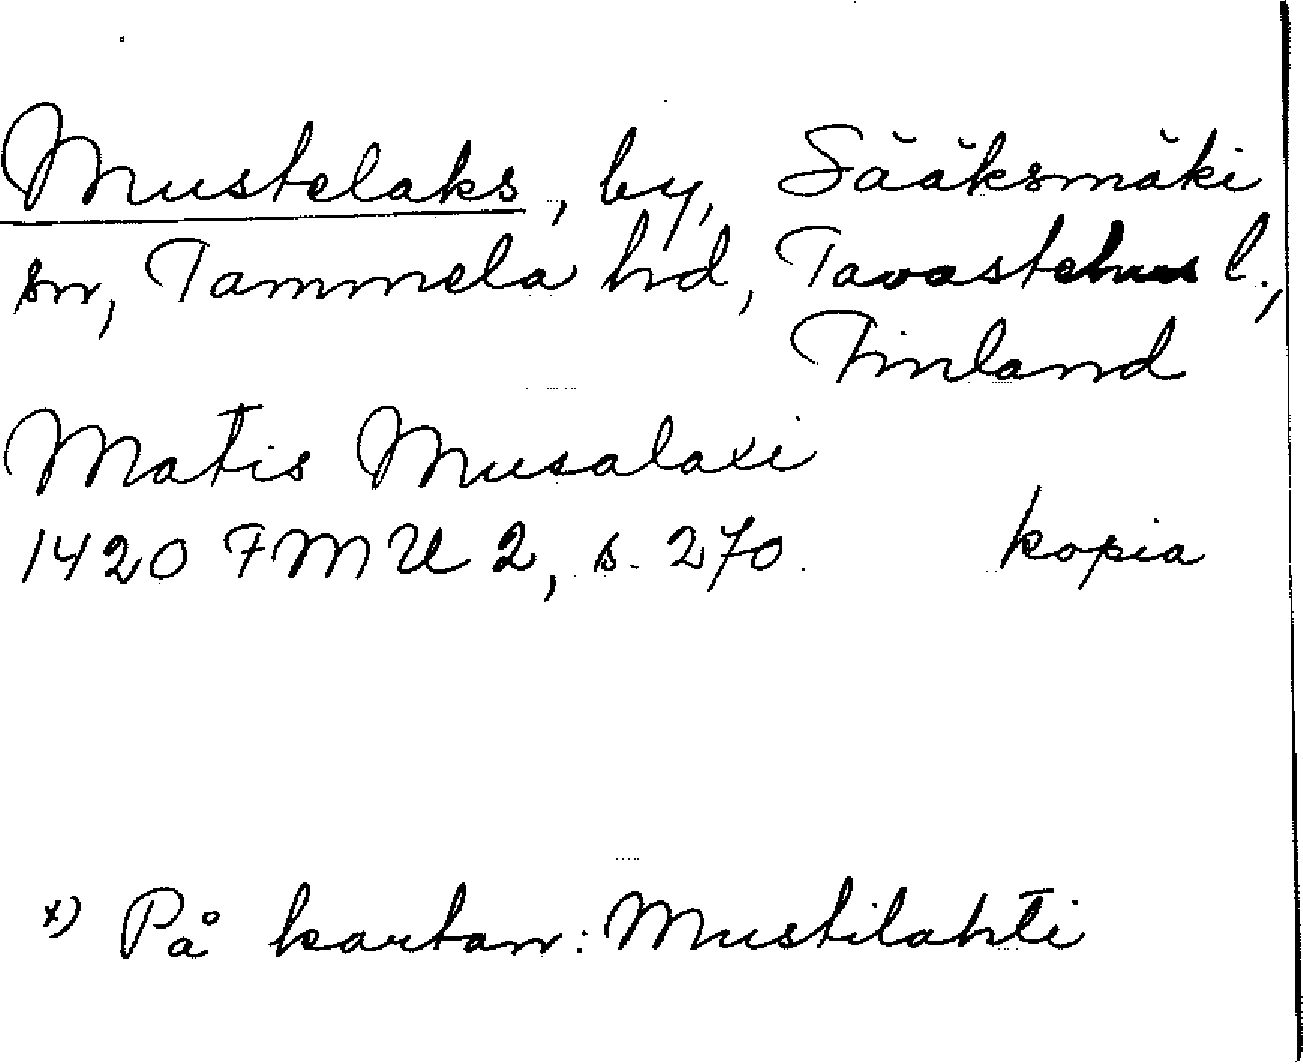 Mustelaks, by, Sääksmäki
sn, Tammela hd, Tavastehus l.,
Finland
Matis Musalaxi
1420 FMU 2, s. 270. kopia
x) På kartan: Mustilahti